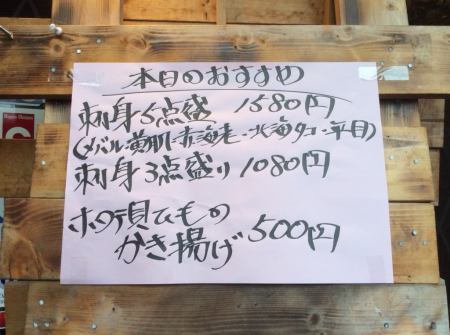 本日のおすすめ
刺身5点盛 1580円
(メバル・黄肌・赤海老・北海タコ・平目)
刺身3点盛り 1080円
ホタテ貝ひもの
かき揚げ 500円